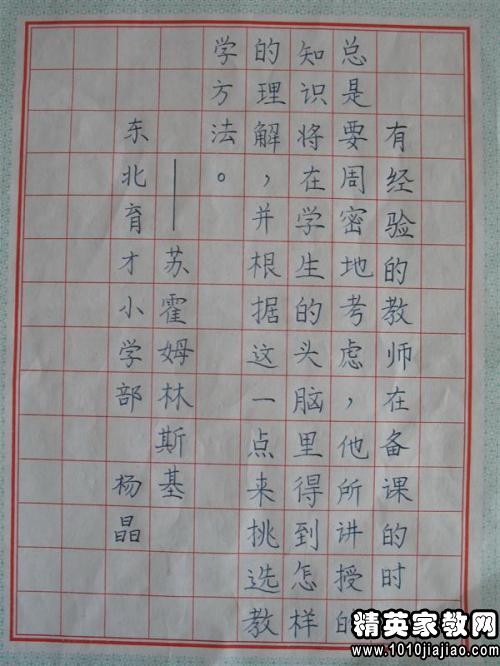 有经验的教师在备课的时
总是要周密地考虑，他所讲授的
知识将在学生的头脑里得到怎样
的理解，并根据这一点来挑选教
学方法。
——苏霍姆林斯基
东北育才小学部 杨晶
精英家教网
www.1010jiajiao.com